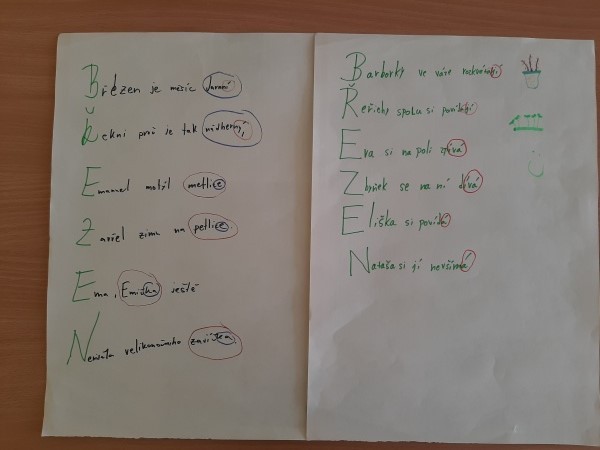 Březen je měsíc jarní
Řekni proč je tak nádherný,
Emanuel motýl metlice
Zavřel zimu na petlice.
Ema, Emička ještě
Nemata velikonočního zajíčka.
Barborky ve váze rozkvétají
Řeřichy spolu si povídají
Eva si na poli zpívá
Zbyněk se na ni dívá
Eliška si povídá
Nataša si jí nevšímá